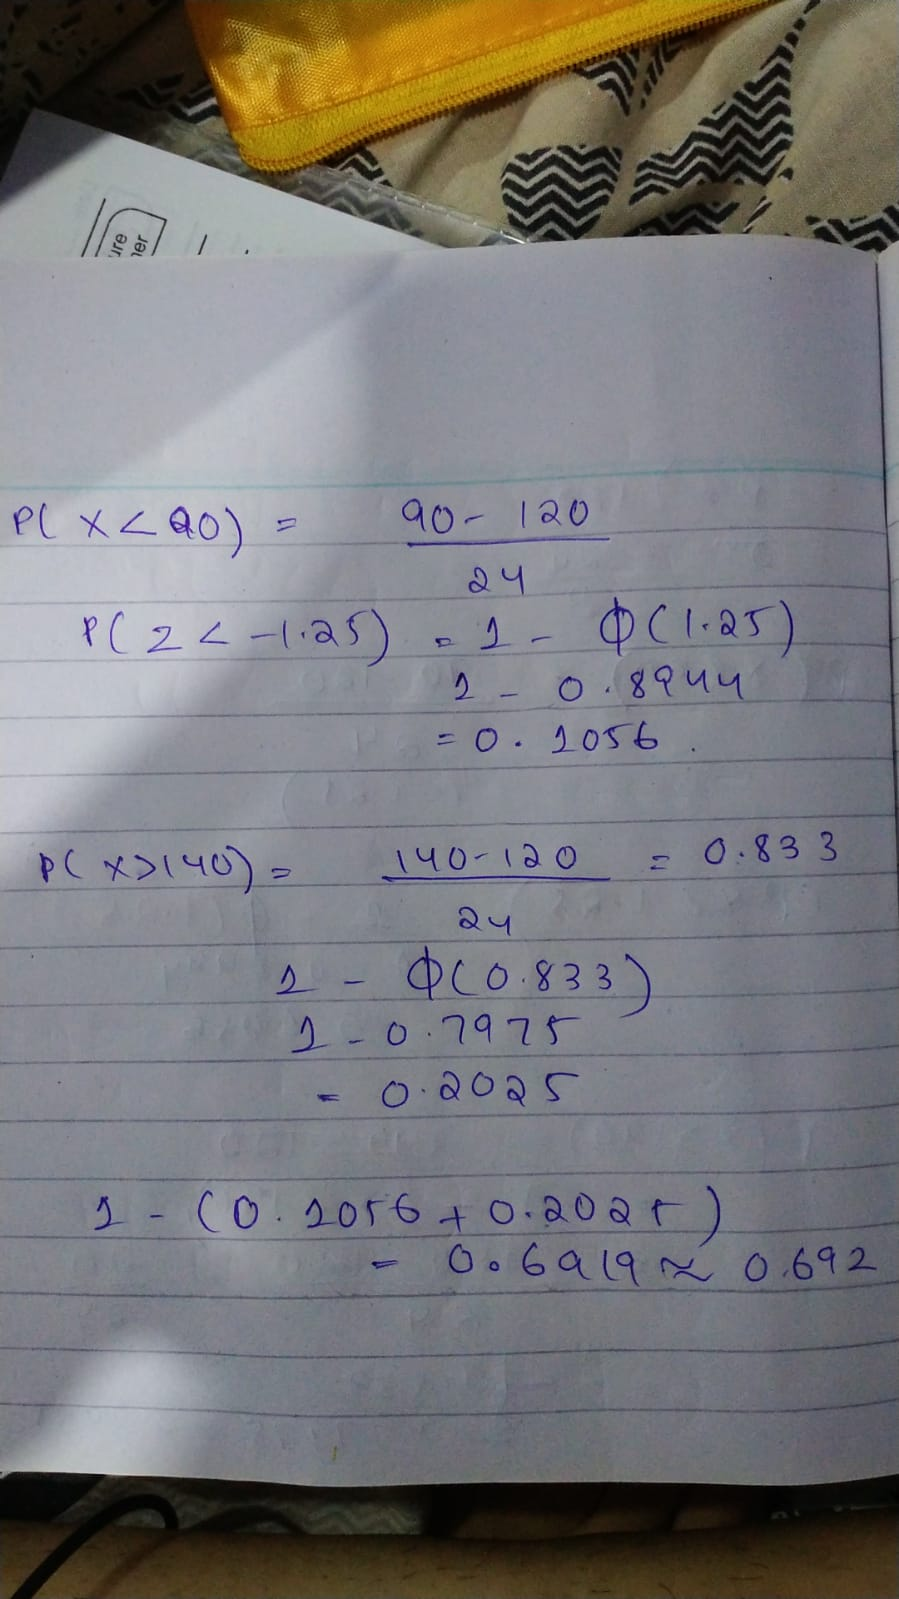 ure
her
P( X < 90) = 90 - 120
24
P( Z < -1.25) = 1 - Φ(1.25)
1 - 0.8944
= 0.1056.
P( X > 140) = 140-120 = 0.833
24
1 - Φ(0.833)
1 - 0.7975
= 0.2025
1 - (0.1056 + 0.2025)
= 0.6919 ≈ 0.692